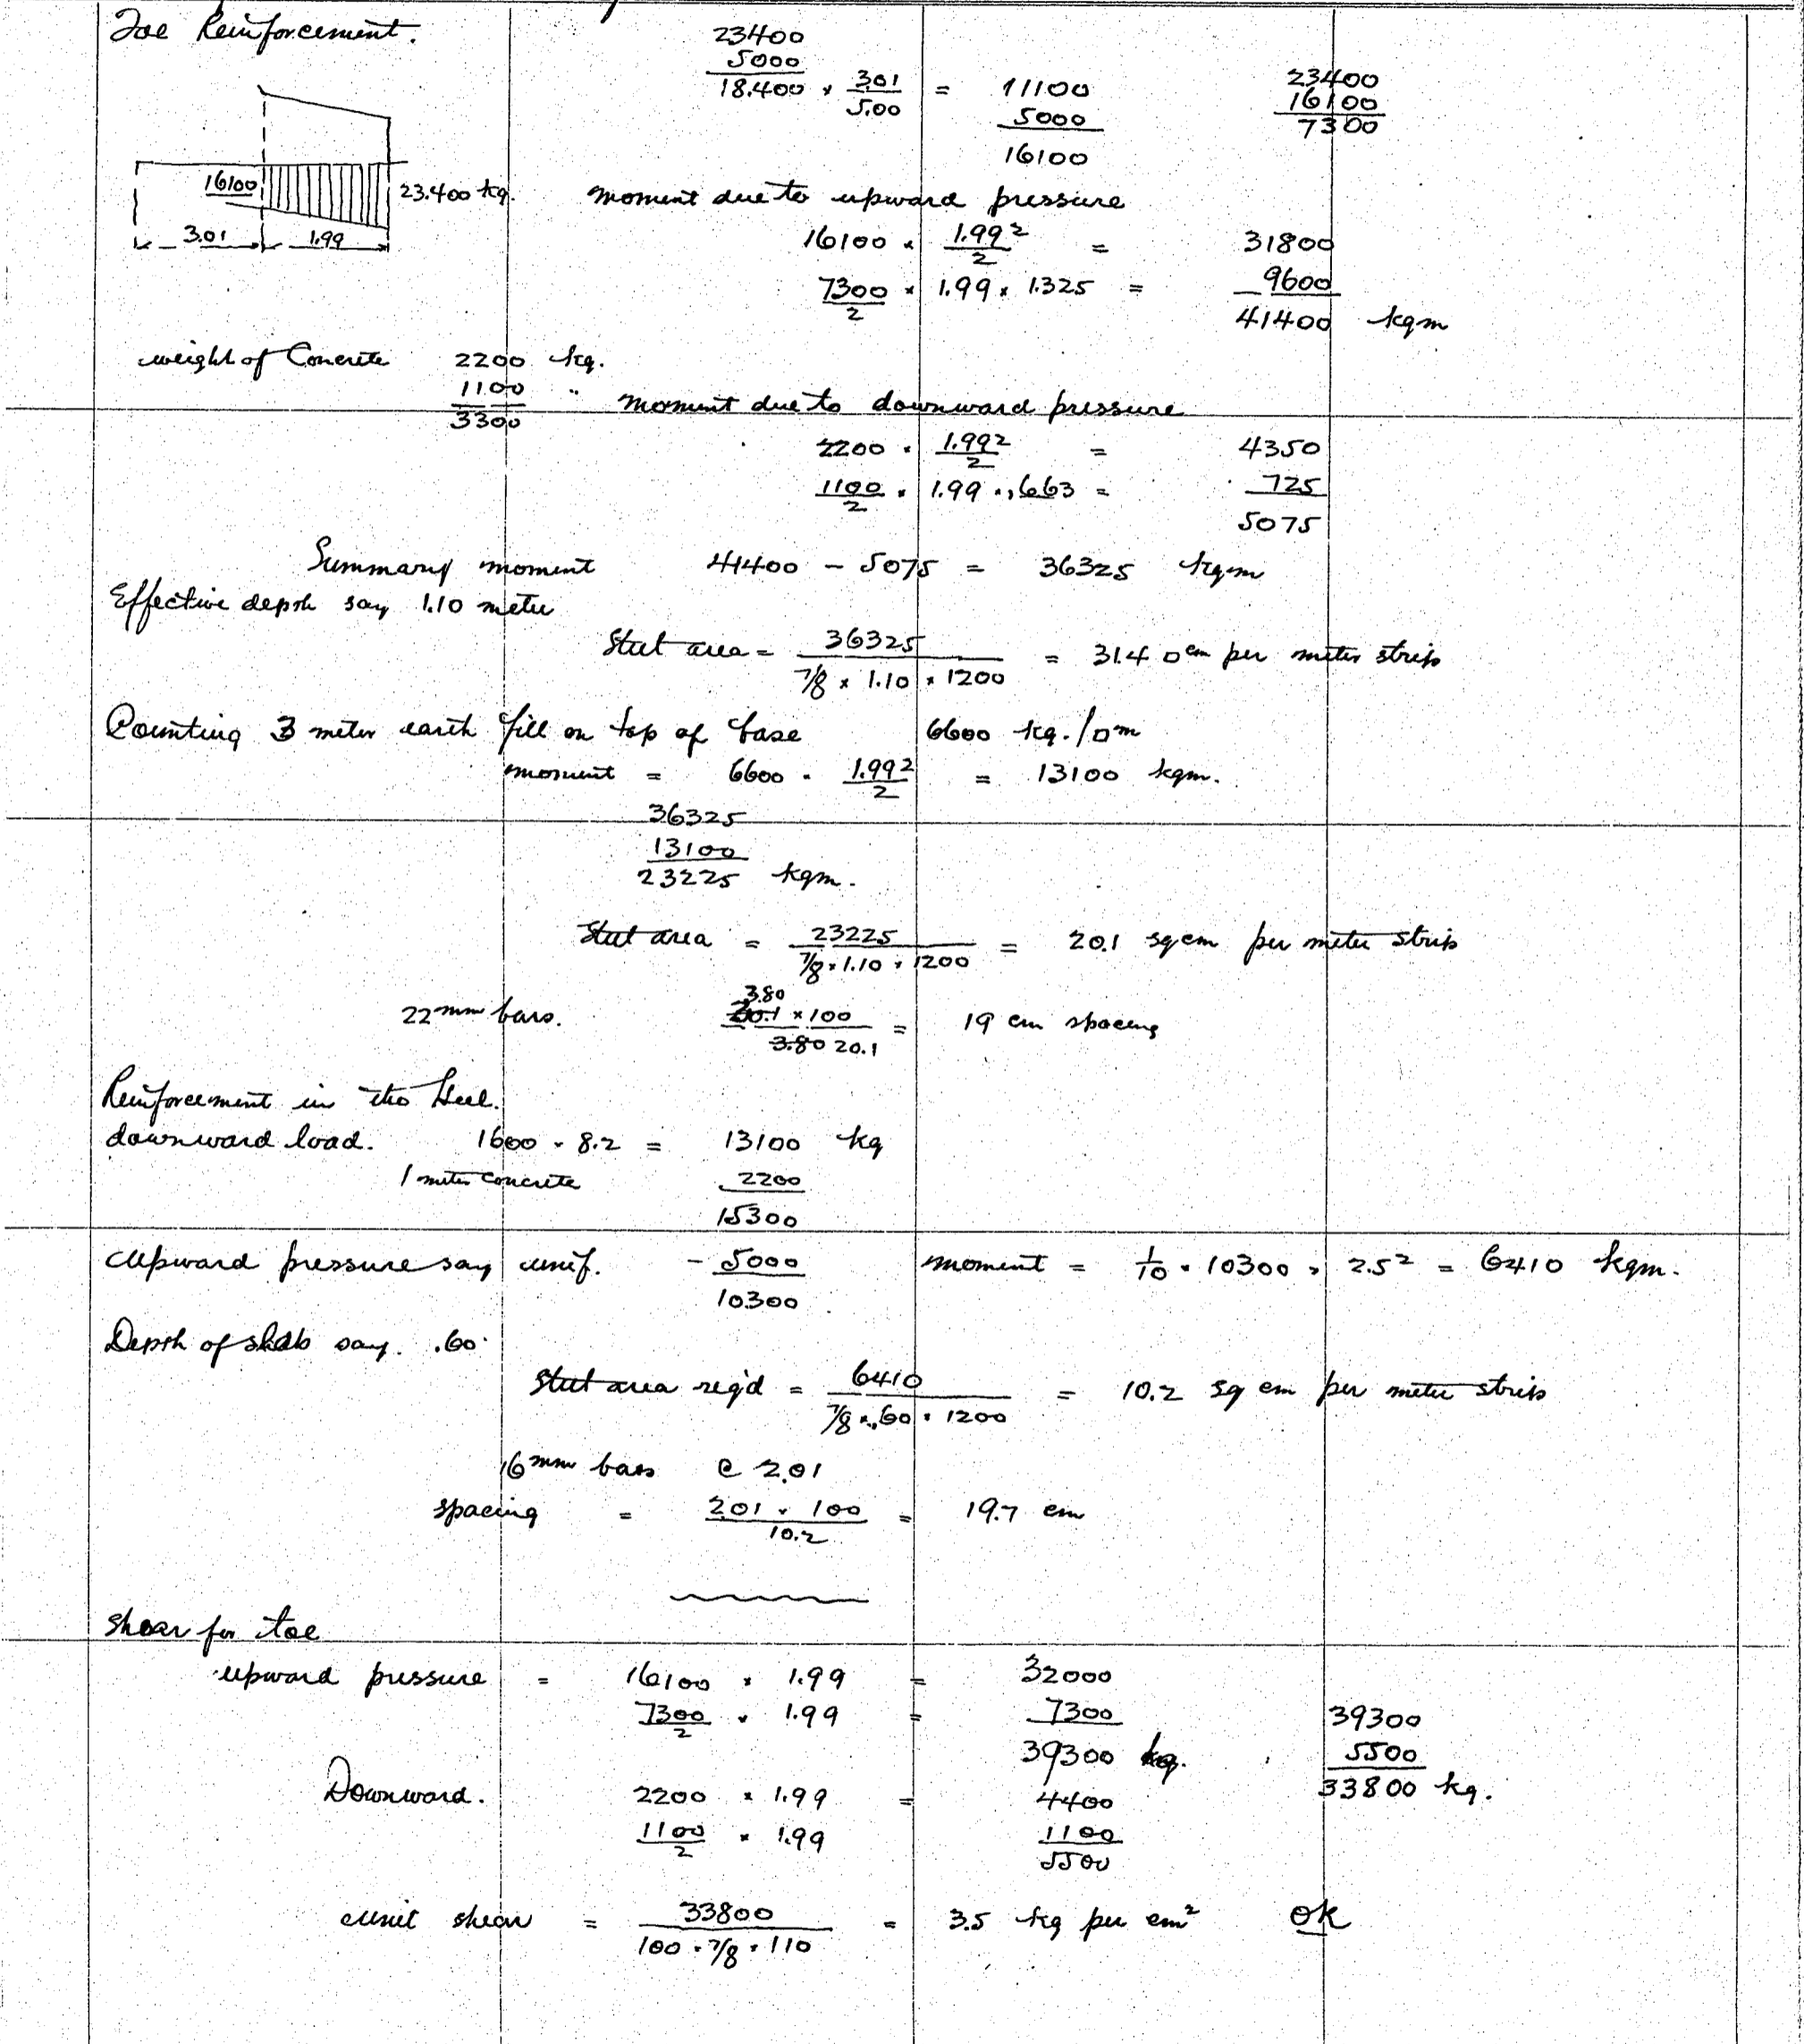 Toe Reinforcement.
23400
5000
18.400 × 3.01/5.00 = 11100
5000
16100
23400
16100
7300
16100
23.400 kg.
3.01 1.99
moment due to upward pressure
16100 × 1.99²/2 = 31800
7300/2 × 1.99 × 1.325 = 9600
41400 kgm
weight of Concrete 2200 kg.
1100 "
3300
moment due to downward pressure
2200 × 1.99²/2 = 4350
1100/2 × 1.99 × .663 = 725
5075
Summary moment 41400 - 5075 = 36325 kgm
Effective depth say 1.10 meter
Steel area = 36325 / 7/8 × 1.10 × 1200 = 31.4 □cm per meter strip
Counting 3 meter earth fill on top of base 6600 kg./□m
moment = 6600 × 1.99²/2 = 13100 kgm.
36325
13100
23225 kgm.
Steel area = 23225 / 7/8 × 1.10 × 1200 = 20.1 sq cm per meter strip
22mm bars. 3.80 20.1 × 100 / 3.80 20.1 = 19 cm spacing
Reinforcement in the Heel.
downward load. 1600 × 8.2 = 13100 kg
1 meter concrete 2200
15300
Upward pressure say unif. - 5000 moment = 1/10 × 10300 × 2.5² = 6410 kgm.
10300
Depth of slab say. .60
Steel area req'd = 6410 / 7/8 × .60 × 1200 = 10.2 sq cm per meter strip
16mm bars @ 2.01
spacing = 2.01 × 100 / 10.2 = 19.7 cm
Shear for toe
upward pressure = 16100 × 1.99 = 32000
7300/2 × 1.99 = 7300
39300 kg.
39300
5500
33800 kg.
Downward. 2200 × 1.99 = 4400
1100/2 × 1.99 1100
5500
unit shear = 33800 / 100 × 7/8 × 110 = 3.5 kg per cm² OK